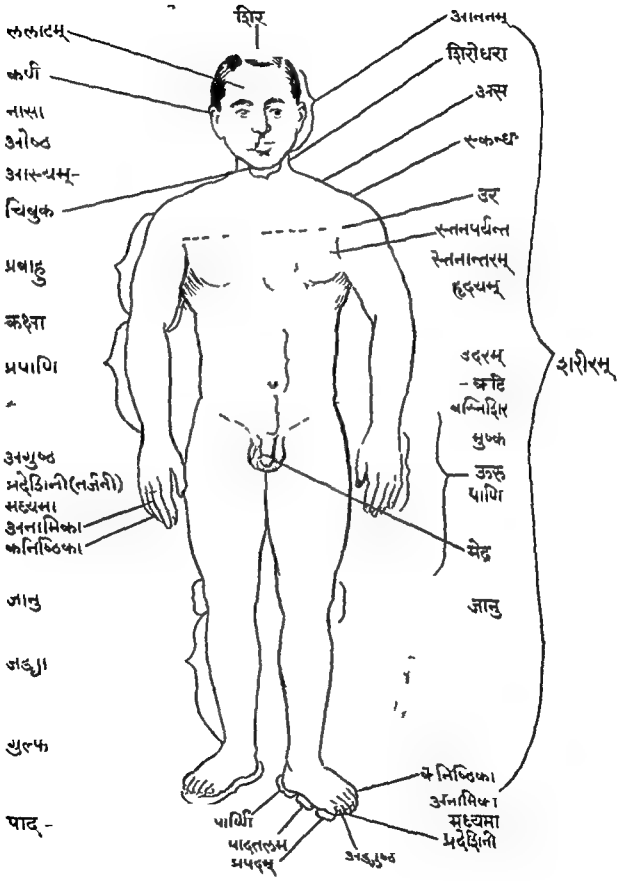 शिर
ललाटम्
कर्ण
नासा
ओष्ठ
आस्यम्-
चिबुक
प्रबाहु
कक्षा
प्रपाणि
अगुष्ठ
प्रदेशिनी(तर्जनी)
मध्यमा
अनामिका
कनिष्ठिका
जानु
जङ्घा
गुल्फ
पाद-
आननम्
शिरोधरा
अस
स्कन्ध
उर
स्तनपर्यन्त
स्तनान्तरम्
हृदयम्
उदरम्
-कटि
बस्तिशिर
मुष्क
ऊरु
पाणि
मेद्र
जानु
शरीरम्
कनिष्ठिका
अनामिका
मध्यमा
प्रदेशिनी
पार्ष्णि
पादतलम
प्रपदम्
अङ्गुष्ठ